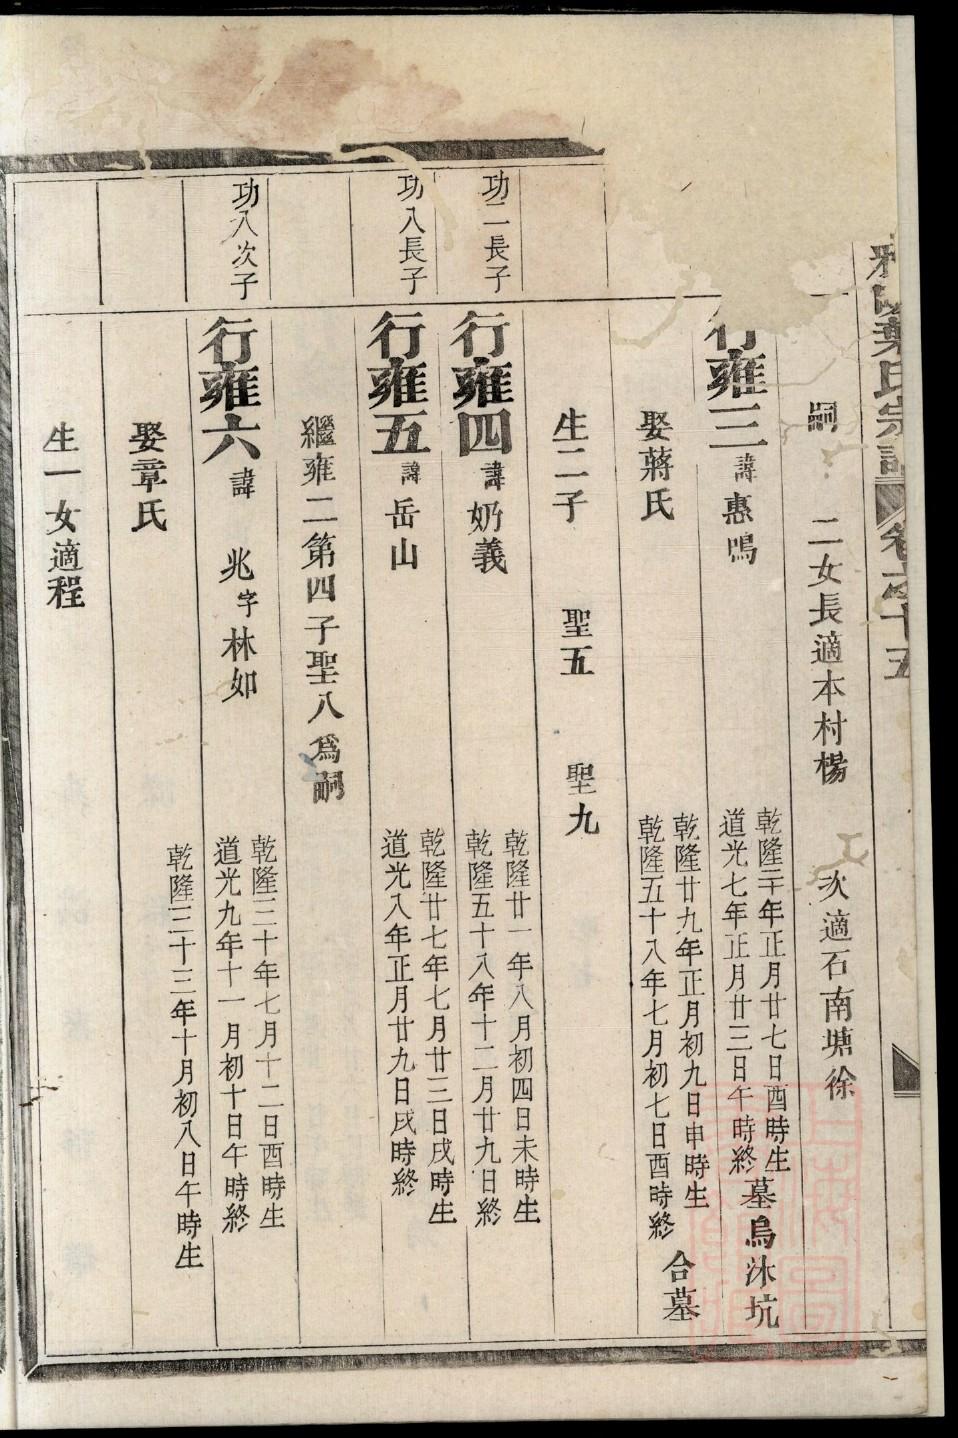 葉氏宗譜 卷之十五
嗣 二女長適本村楊 次適石南塘徐
行雍三 諱惠鳴 乾隆二十年正月廿七日酉時生
道光七年正月廿三日午時終 墓烏沐坑
娶蔣氏 乾隆廿九年正月初九日申時生
乾隆五十八年七月初七日酉時終 合墓
生二子 聖五 聖九
功二長子
行雍四 諱奶義 乾隆廿一年八月初四日未時生
乾隆五十八年十二月廿九日終
功八長子
行雍五 諱岳山 乾隆廿七年七月廿三日戌時生
道光八年正月廿九日戌時終
繼雍二第四子聖八爲嗣
功八次子
行雍六 諱兆 字林如 乾隆三十年七月十二日酉時生
道光九年十一月初十日午時終
娶章氏 乾隆三十三年十月初八日午時生
生一女適程